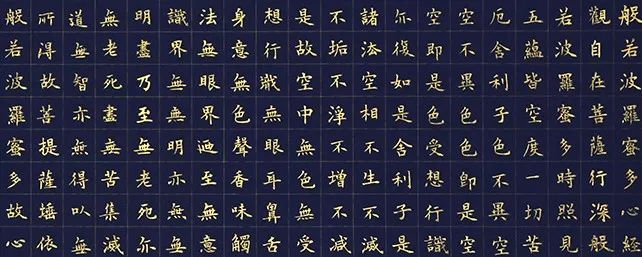 般若波羅蜜多心經
觀自在菩薩行深般
若波羅蜜多時照見
五蘊皆空度一切苦
厄舍利子色不異空
空不異色色即是空
空即是色受想行識
尒復如是舍利子是
諸法空相不生不滅
不垢不淨不增不減
是故空中無色無受
想行識無眼耳鼻舌
身意無色聲香味觸
法無眼界迺至無意
識界無無明亦無無
明盡乃至無老死尒
無老死盡無苦集滅
道無智亦無得以無
所得故菩提薩埵依
般若波羅蜜多故心